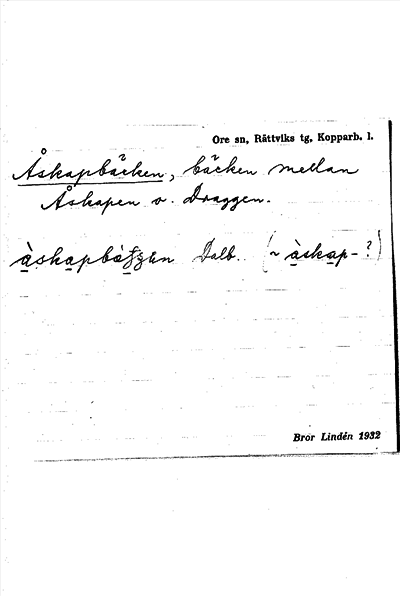 Ore sn, Rättviks tg, Kopparb. l.
Åskapbäcken, bäcken mellan
Åskapen o. Draggen.
Dalb.
Bror Lindén 1932